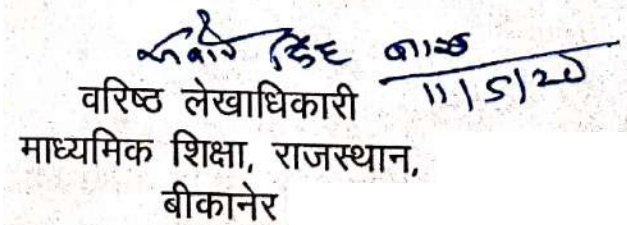 सिंह
11/5/20
वरिष्ठ लेखाधिकारी
माध्यमिक शिक्षा, राजस्थान,
बीकानेर